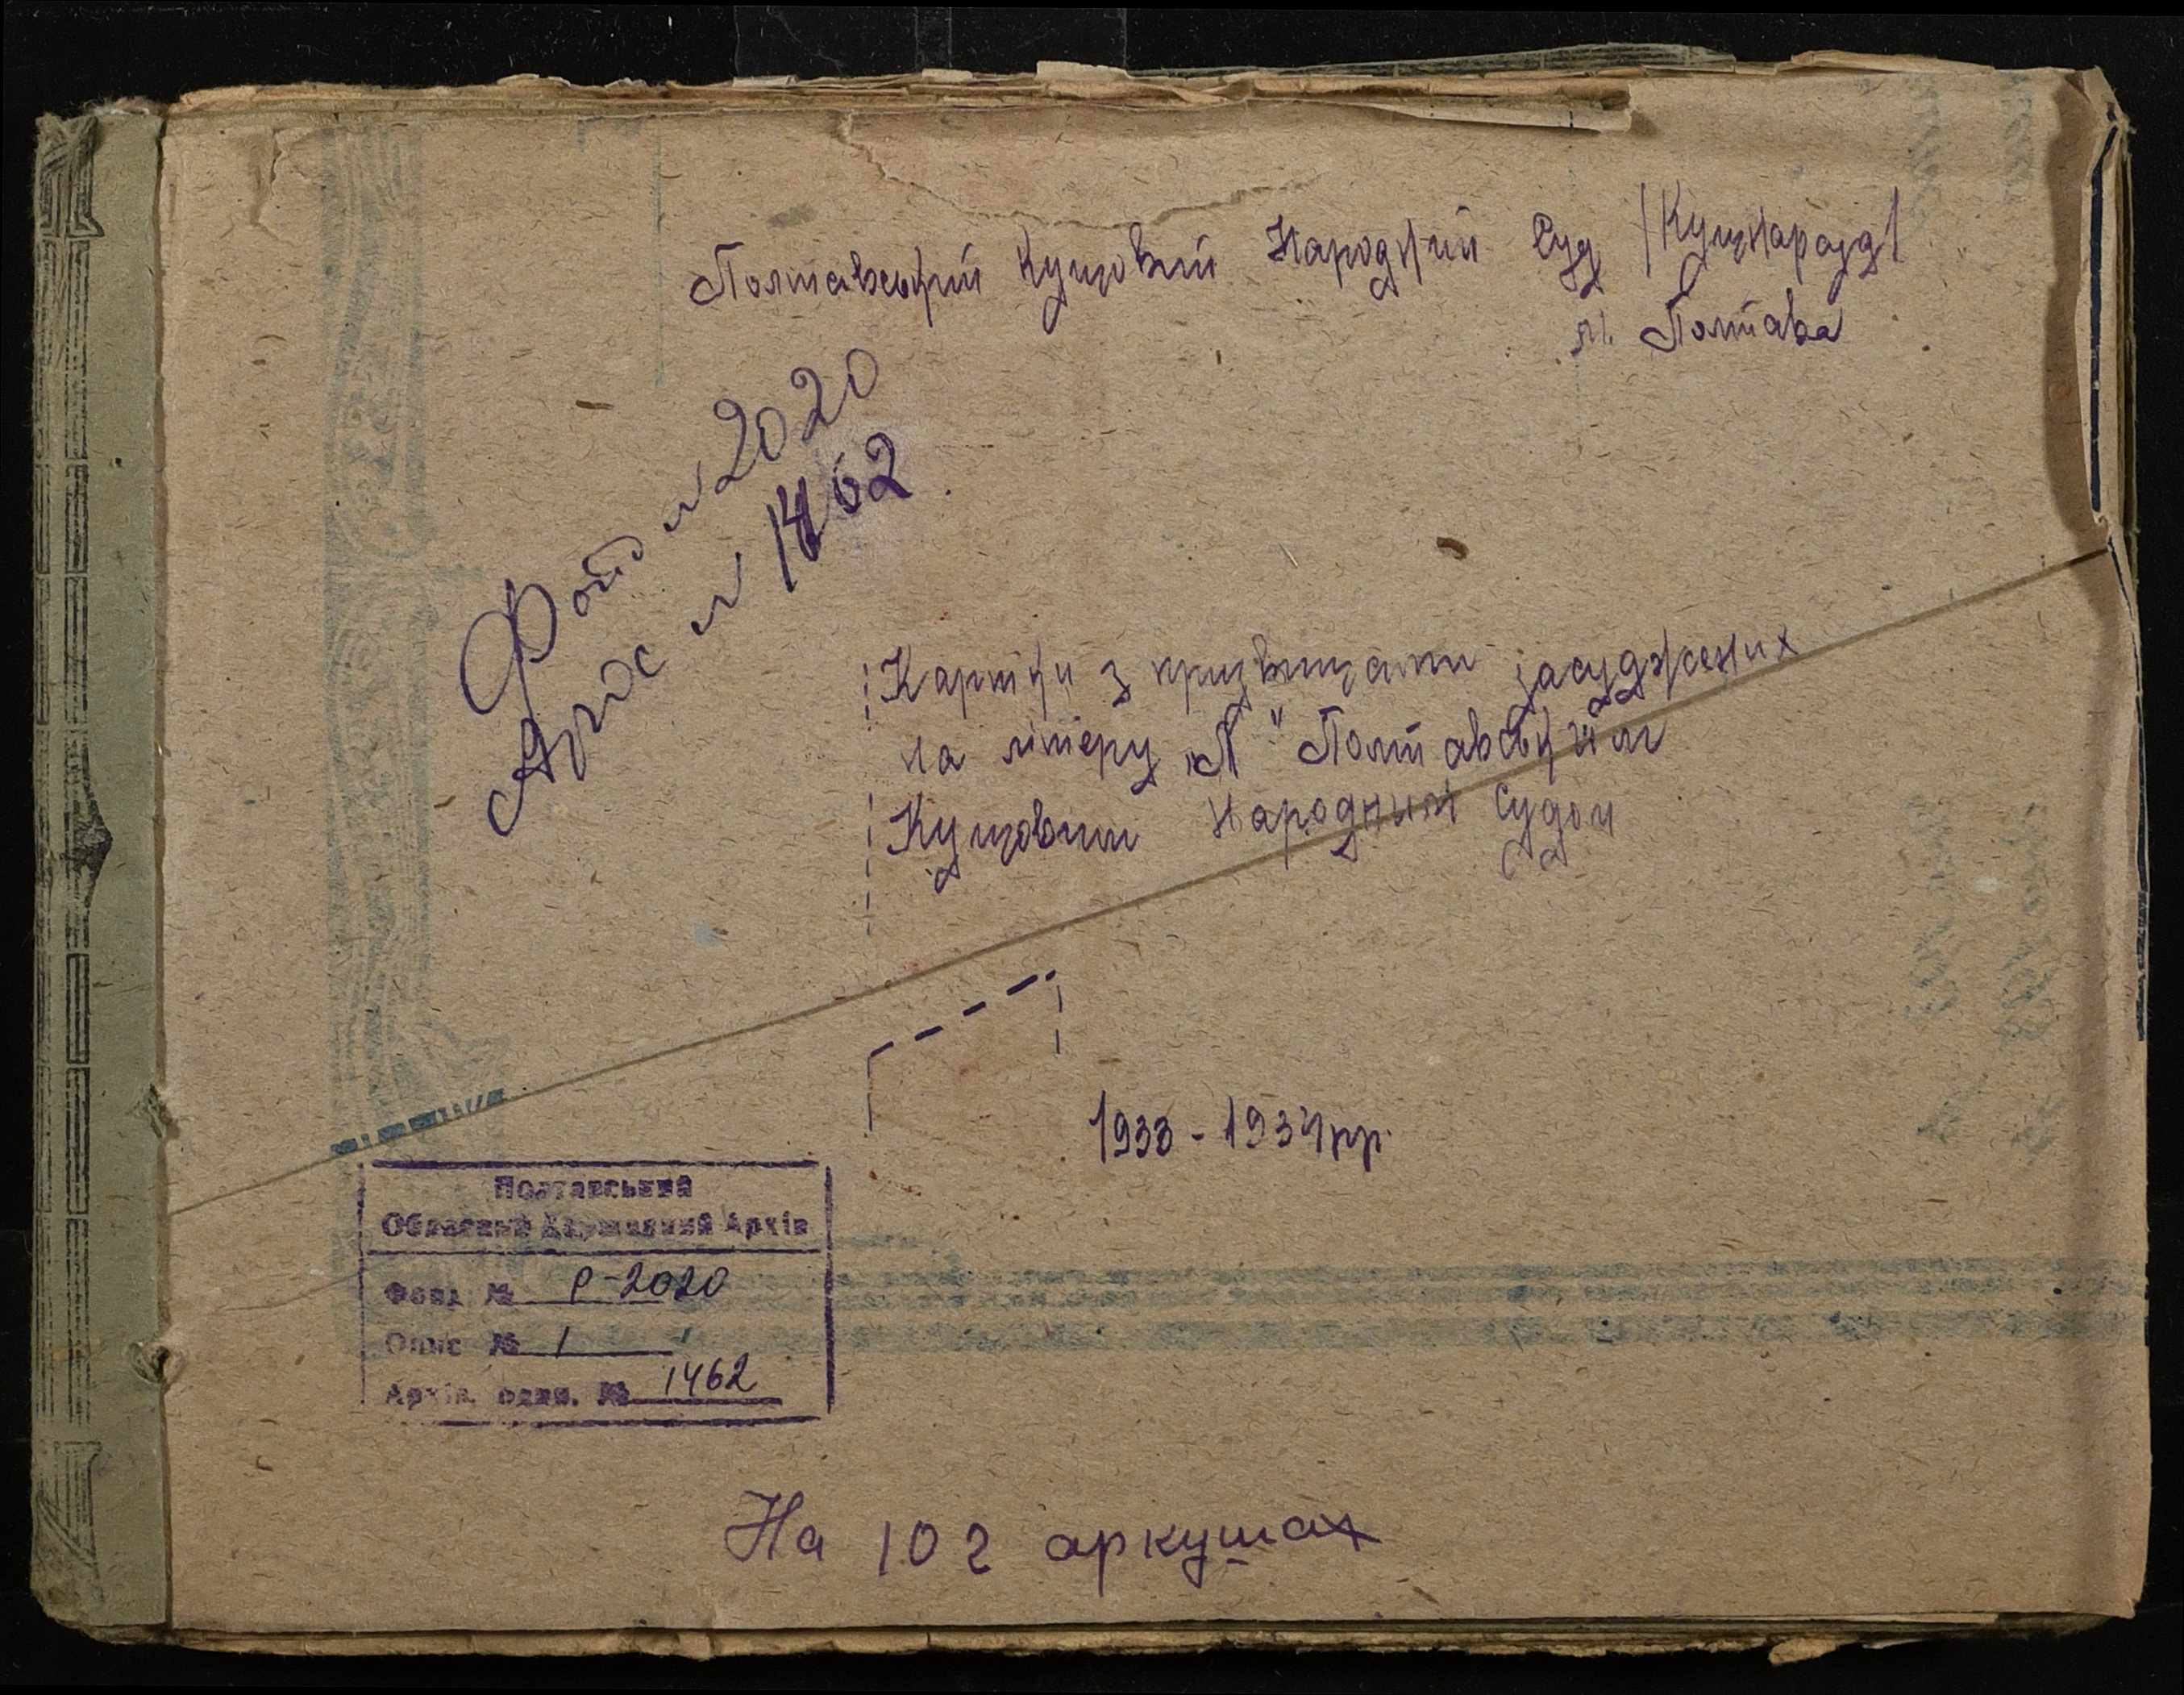 Полтавський Кущовий Народний Суд /Кущнарсуд/
м. Полтава
Фонд № 2020
Арх № 1462
Картки з прізвищами засуджених
на літеру „Л" Полтавським
Кущовим Народним Судом
1933 - 1934 рр.
Полтавський
Обласний Державний Архів
Фонд № Р-2020
Опис № 1
Архів. один. № 1462
На 102 аркушах